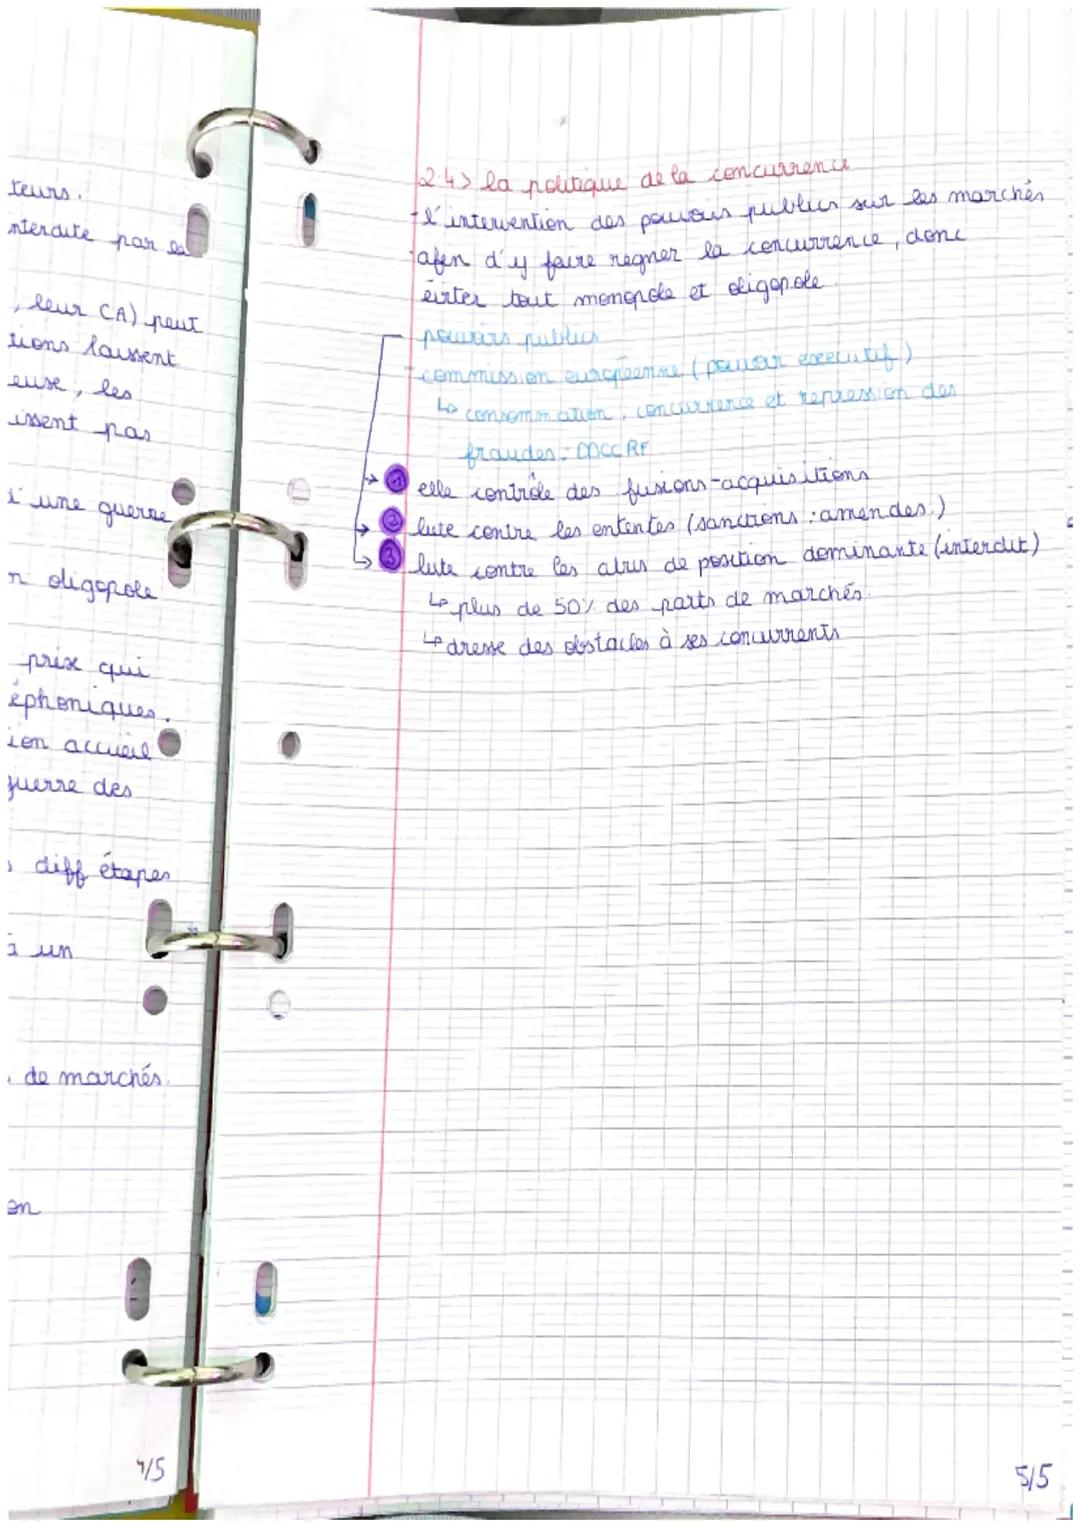 teurs.
interdite par la
, leur CA) peut
tions laissent
euse, les
issent pas
d'une guerre
n oligopole
prix qui
éphoniques.
ion accueil
guerre des
s diff étapes
à un
de marchés.
on
4/5
2.4> la politique de la concurrence
-l'intervention des pouvoirs publics sur les marchés
afin d'y faire régner la concurrence, donc
éviter tout monopole et oligopole
pouvoirs publics
- commission européenne (pouvoir executif)
↳ consommation, concurrence et repression des
fraudes: DDCCRF
→ ① elle contrôle des fusions-acquisitions
→ ② lute contre les ententes (sanctions : amendes.)
→ ③ lute contre les abus de position dominante (interdit)
↳ plus de 50% des parts de marchés
↳ dresse des obstacles à ses concurrents
5/5